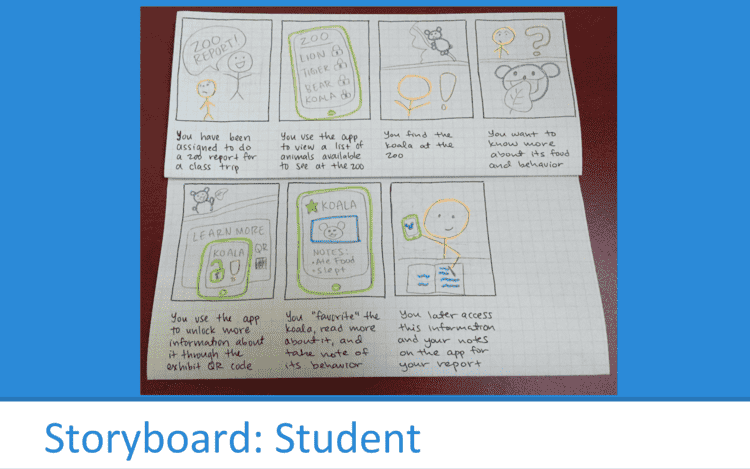 ZOO
REPORT!
You have been
assigned to do
a zoo report for
a class trip
ZOO
LION
TIGER
BEAR
KOALA
You use the app
to view a list of
animals available
to see at the zoo
!
You find the
koala at the
zoo
?
You want to
know more
about its food
and behavior
LEARN MORE
KOALA
QR
!
You use the app
to unlock more
information about
it through the
exhibit QR code
KOALA
NOTES:
• Ate Food
• Slept
You "favorite" the
koala, read more
about it, and
take note of
its behavior
You later access
this information
and your notes
on the app for
your report
Storyboard: Student